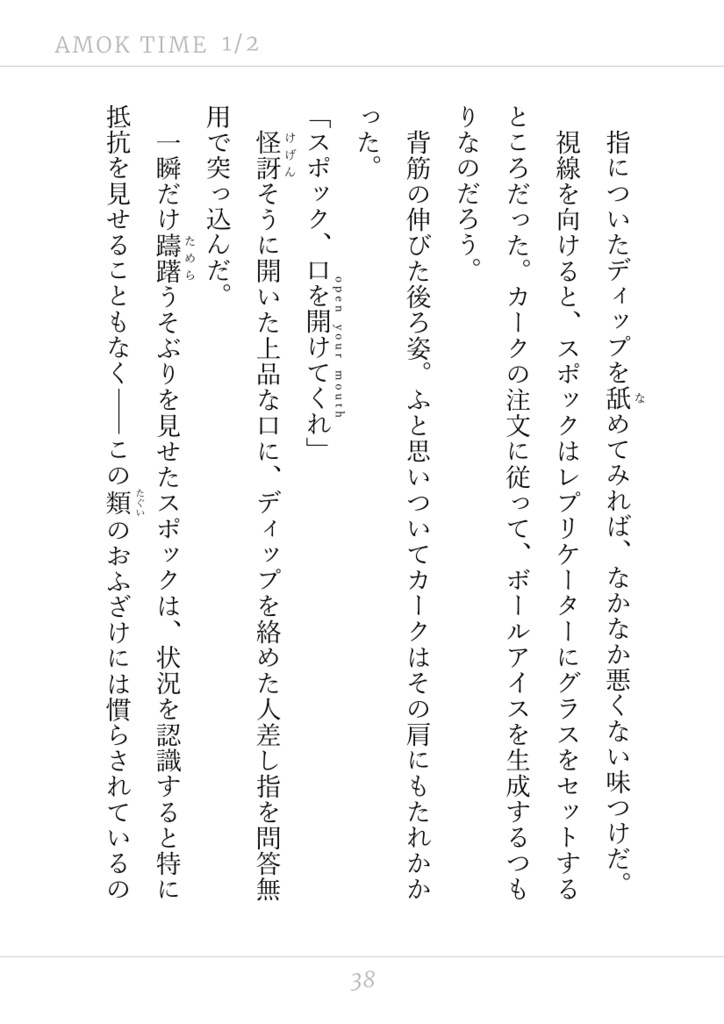 AMOK TIME 1/2
指についたディップを舐めてみれば、なかなか悪くない味つけだ。
な
視線を向けると、スポックはレプリケーターにグラスをセットする
ところだった。カークの注文に従って、ボールアイスを生成するつも
りなのだろう。
背筋の伸びた後ろ姿。ふと思いついてカークはその肩にもたれかか
った。
「スポック、口を開けてくれ」
open your mouth
怪訝そうに開いた上品な口に、ディップを絡めた人差し指を問答無
けげん
用で突っ込んだ。
一瞬だけ躊躇うそぶりを見せたスポックは、状況を認識すると特に
ためら
抵抗を見せることもなく――この類のおふざけには慣らされているの
たぐい
38